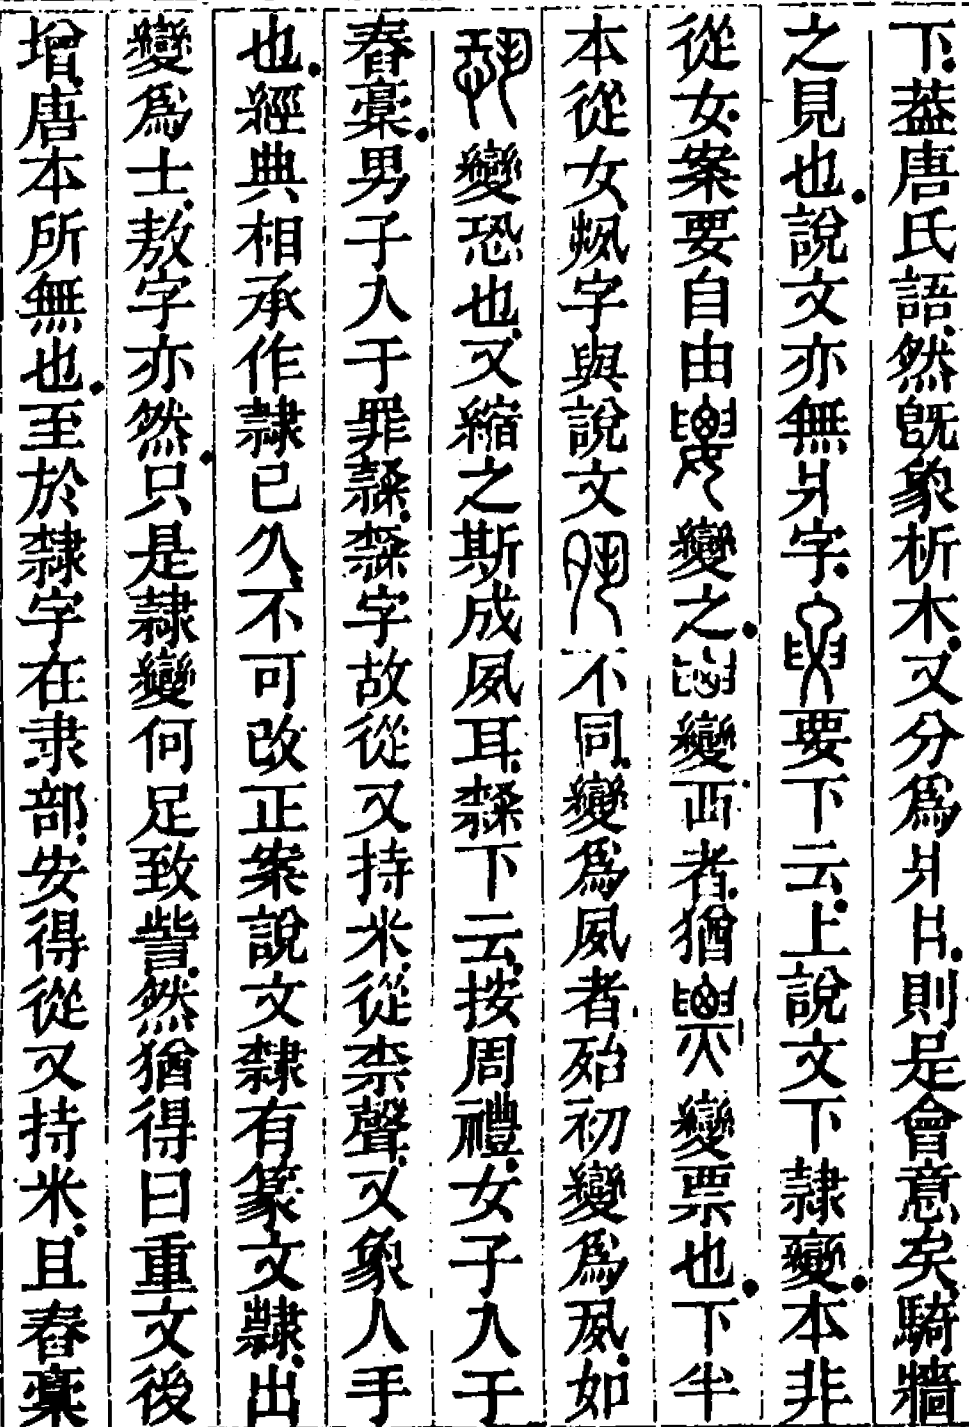 下蓋唐氏語然旣象析木又分爲爿片則是會意矣騎牆
之見也說文亦無爿字要下云上說文下隷變本非
從女案要自由變之變覀者猶變票也下半
本從女㶡字與說文不同變爲夙者殆初變爲夙如
變恐也又縮之斯成夙耳𥽿下云按周禮女子入于
舂稾男子入于罪𥽿𥽿字故從又持米從柰聲又象人手
也經典相承作隸已久不可改正案說文隸有篆文隸出
變爲士敖字亦然只是隷變何足致訾然猶得曰重文後
增唐本所無也至於隸字在隶部安得從又持米且舂稾